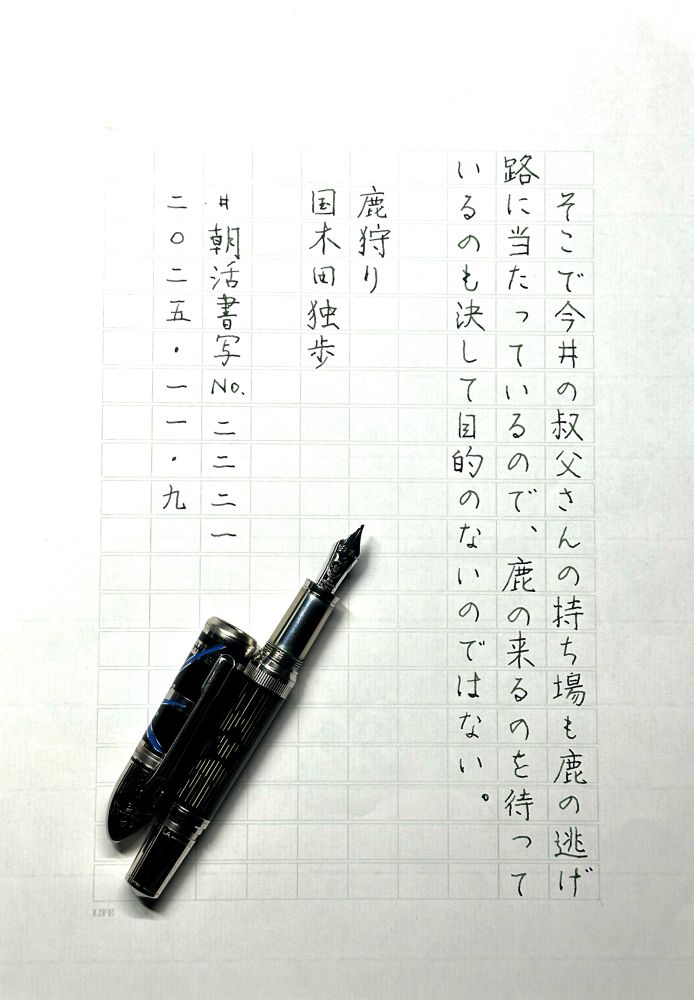 そこで今井の叔父さんの持ち場も鹿の逃げ
路に当たっているので、鹿の来るのを待って
いるのも決して目的のないのではない。
鹿狩り
国木田独歩
#朝活書写No.二二二一
二〇二五・一一・九
LIFE